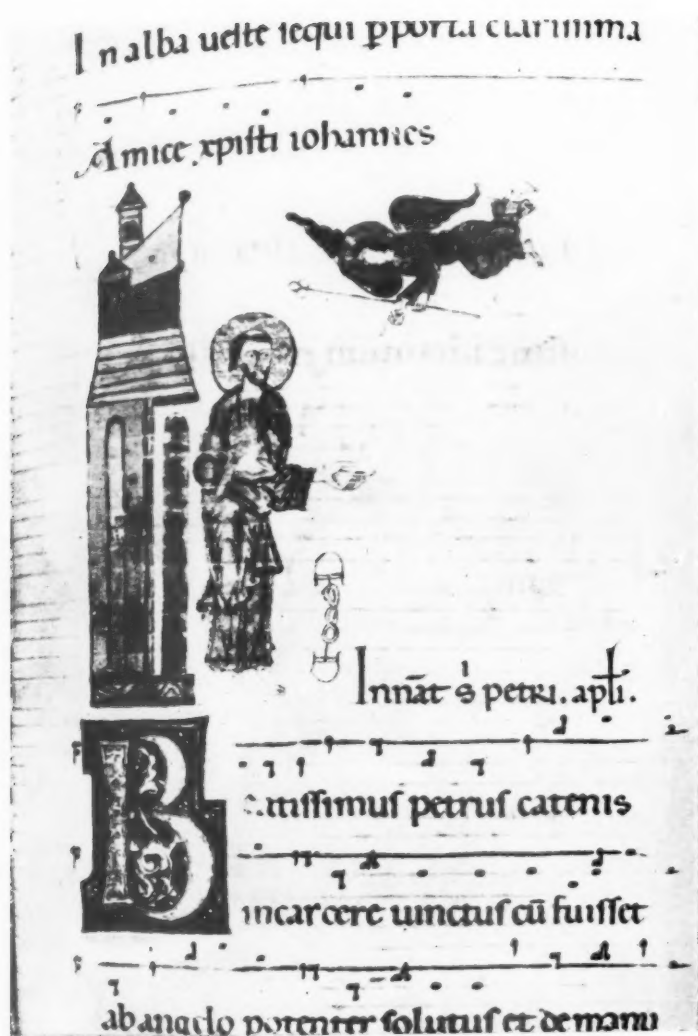 In alba ueste sequi p̱porta clarissima
Amice xpisti iohannes
In nāt s̄i petri. apl̄i.
B atissimus petrus catenis
in carcere uinctus cū fuisset
ab angelo potenter solutus et de manu